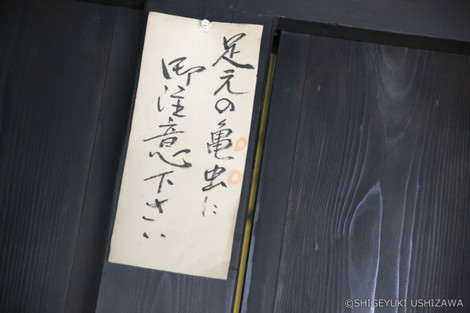 足元の亀虫に
御注意下さい
©SHIGEYUKI USHIZAWA